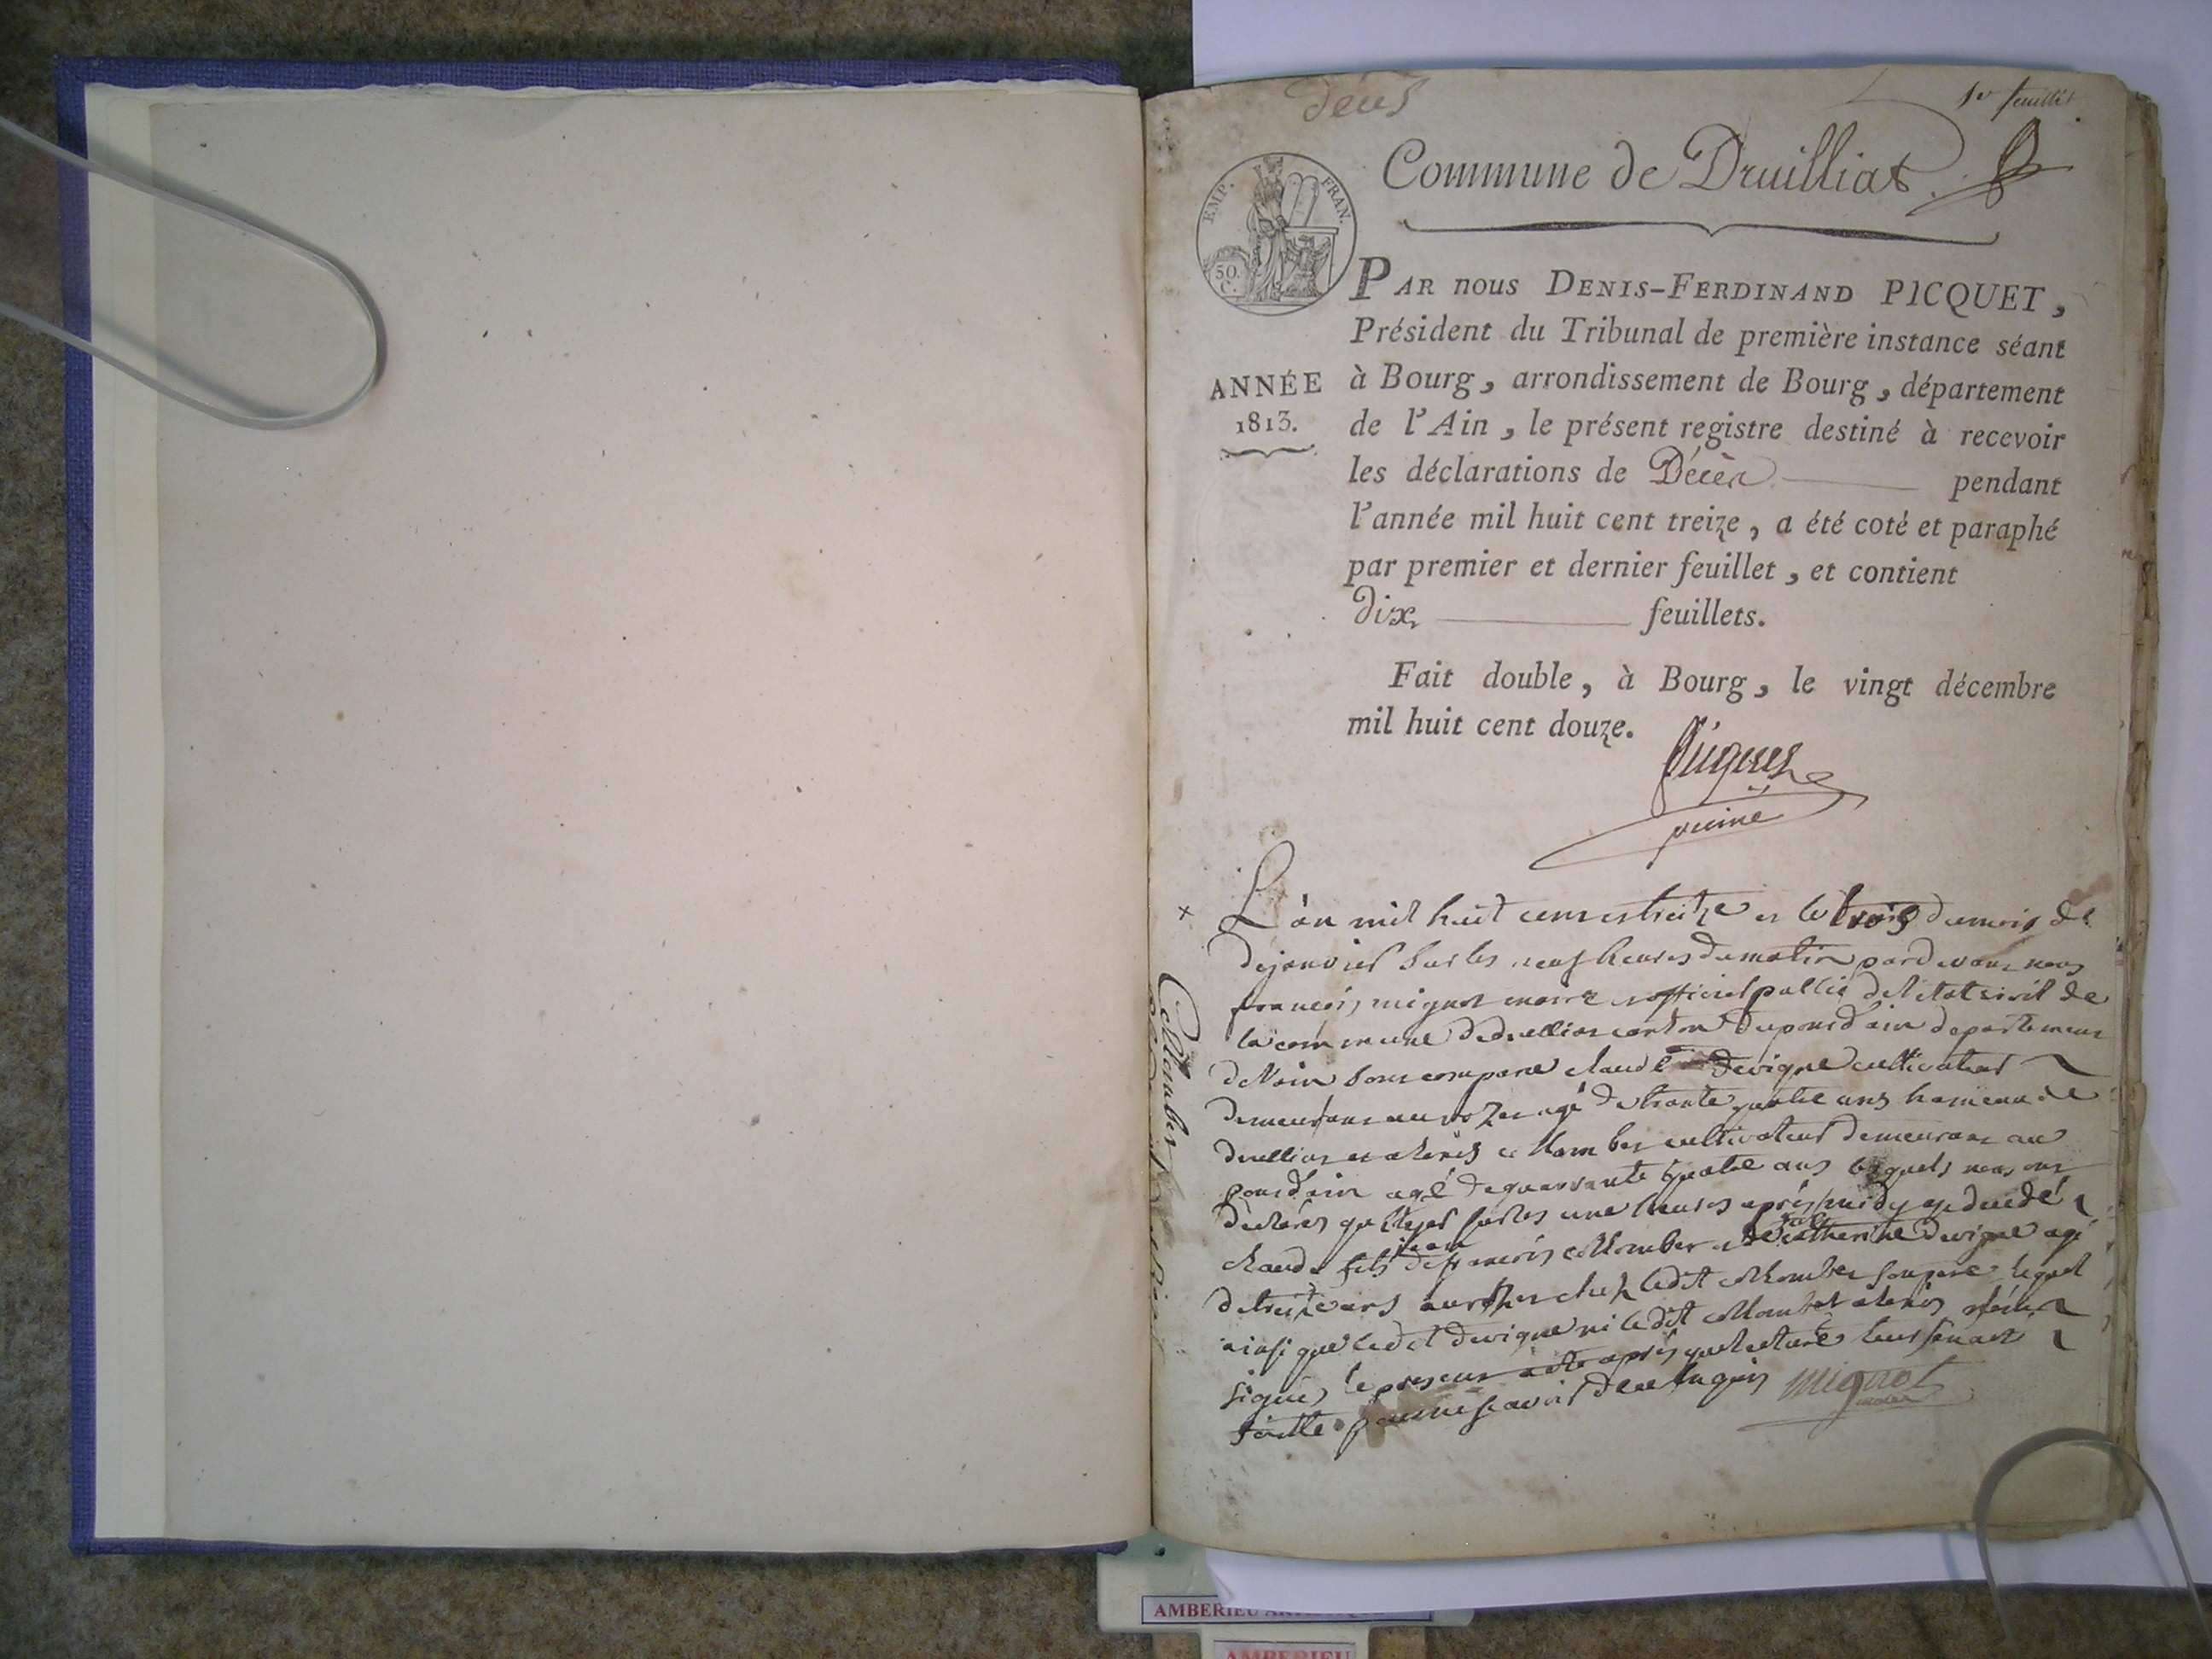 1er feuillet
Commune de Druilliat
EMP. FRAN.
50.
C.
PAR nous DENIS-FERDINAND PICQUET,
Président du Tribunal de première instance séant
ANNÉE
1813.
à Bourg, arrondissement de Bourg, département
de l'Ain, le présent registre destiné à recevoir
les déclarations de Décès pendant
l'année mil huit cent treize, a été coté et paraphé
par premier et dernier feuillet, et contient
Dix feuillets.
Fait double, à Bourg, le vingt décembre
mil huit cent douze.
L'an mil huit cens treize et le trois du mois de
dejanvier sur les neuf heures du matin pardevant nous
francois mignot maire officier public de l'etat sivil de
la commune dedruellias canton du pondain departemens
de l'ain sont comparu claude devigne cultivateur
demeurant au rozet agé detrante quatre ans hameau de
druellias et alexis collomber cultivateur demeurant au
pondain agé dequarante quatre ans lesquels nous ont
declarés quhyer sur les une heures après midy
claude fils jean collomber et de catherine devigne agé
detreize ans chez ledit collomber son pere lequel
ainsi que ledit devigne ni ledit collomber alexis
signés le present acte après que lecture leur en a été
faitte pour ne savoir de ce enquis mignot
Collomber
AMBERIEU
AMBERIEU